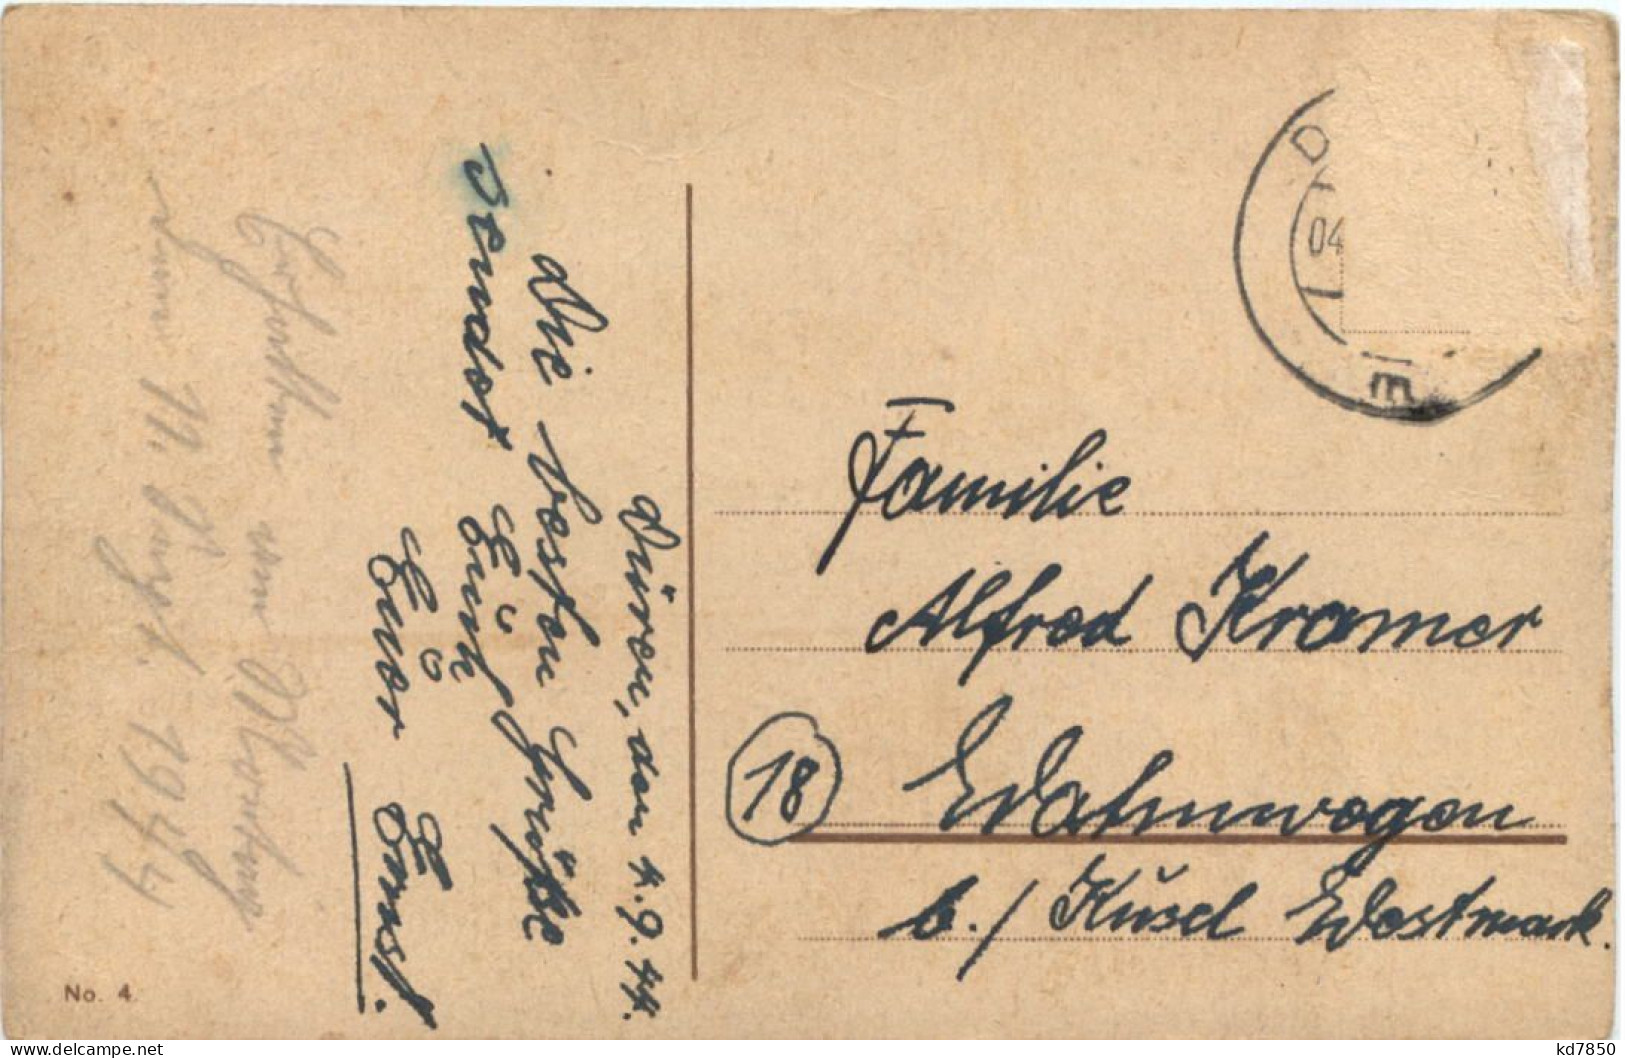 Düren, den 4.9.44.
Die besten Grüße
sendet Euch
Euer Ernst.
Erhalten am Montag
den 11. Sept. 1944
No. 4.
D
04
m
Familie
Alfred Kramer
18 Wahnwegen
b./ Kusel Westmark.
kd7850